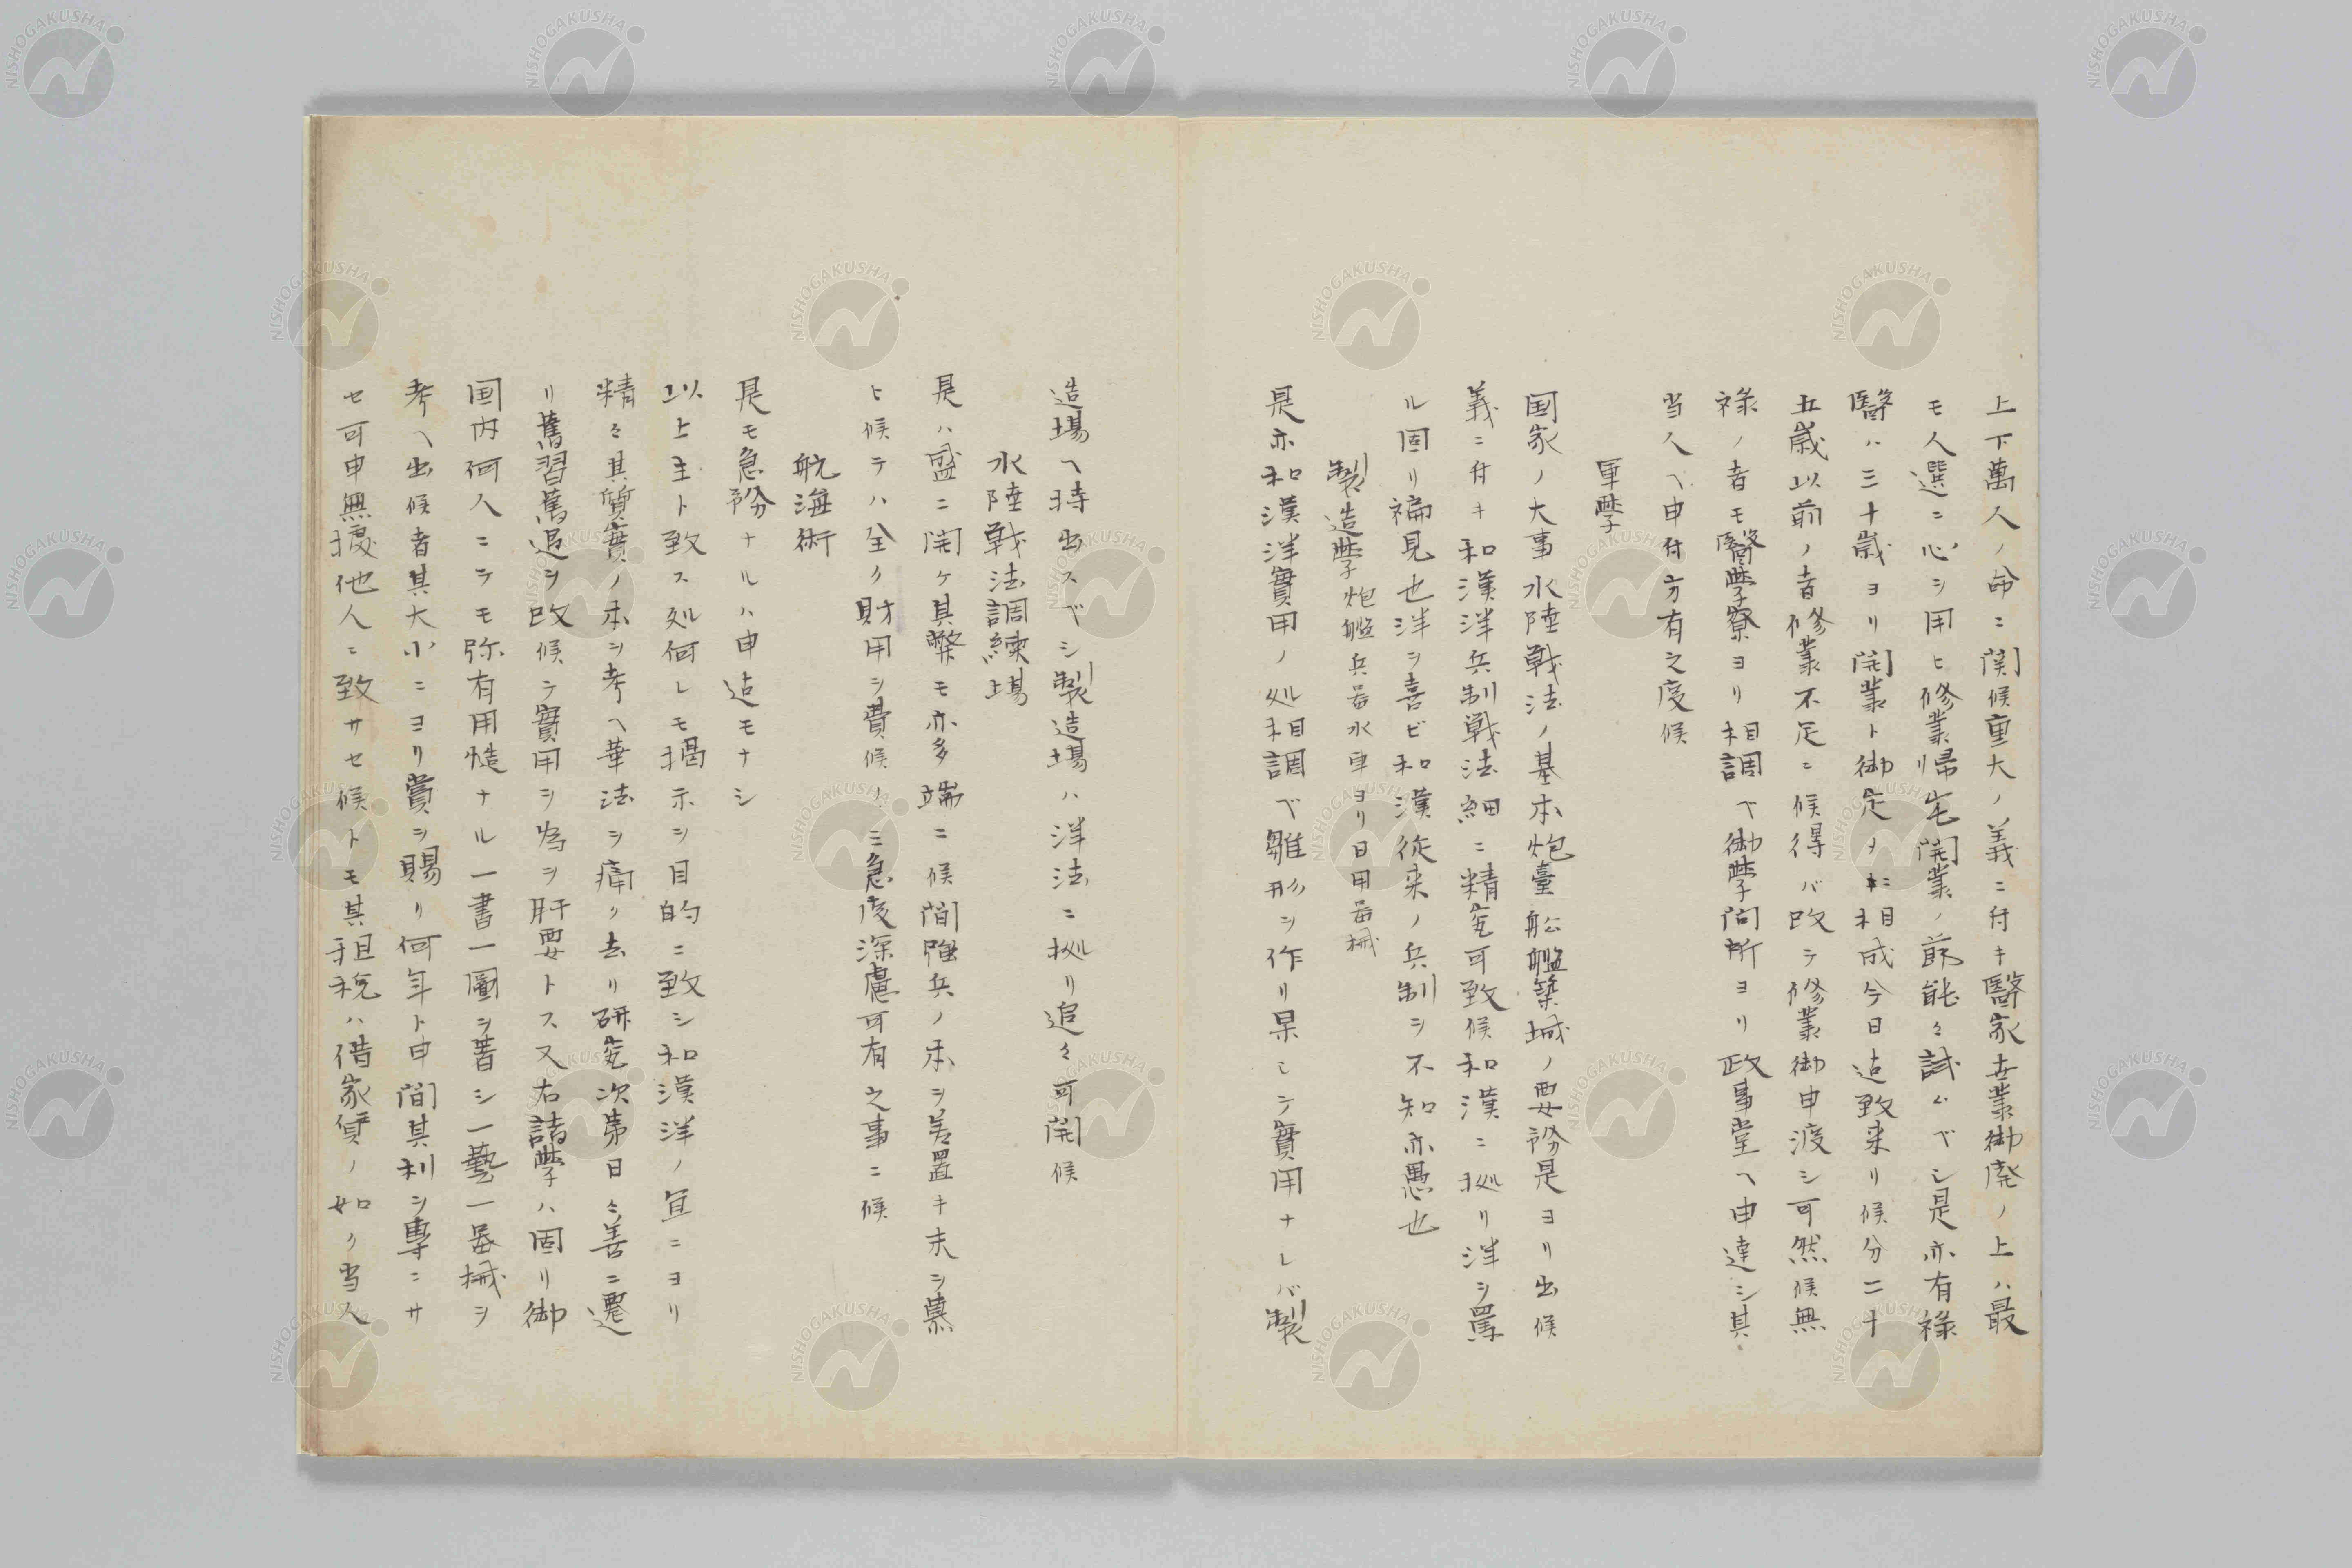 上下萬人ノ命ニ関候重大ノ義ニ付キ醫家世業御廃ノ上ハ最
モ人選ニ心ヲ用ヒ修業帰宅開業ノ節能々試ムベシ是亦有禄
醫ハ三十歳ヨリ開業ト御定メ相成今日迠致来リ候分二十
五歳以前ノ者修業不足ニ候得バ改テ修業御申渡シ可然候無
禄ノ者モ醫學寮ヨリ相調ベ御學問所ヨリ政事堂ヘ申達シ其
当人ヘ申付方有之度候
軍學
国家ノ大事水陸戦法ノ基本炮臺舩艦築城ノ要務是ヨリ出候
義ニ付キ和漢洋兵制戦法細ニ精究可致候和漢ニ拠リ洋ヲ罵
ル固リ褊見也洋ヲ喜ビ和漢従来ノ兵制ヲ不知亦愚也
製造學炮艦兵器水車ヨリ日用器械
是亦和漢洋實用ノ処相調ベ雛形ヲ作リ果シテ實用ナレバ製
造場ヘ持出スベシ製造場ハ洋法ニ拠リ追々可開候
水陸戦法調練場
是ハ盛ニ開ケ其弊モ亦多端ニ候間強兵ノ本ヲ差置キ末ヲ慕
ヒ候テハ全ク財用ヲ費候ノミ急度深慮可有之事ニ候
航海術
是モ急務ナルハ申迠モナシ
以上主ト致ス処何レモ掲示ヲ目的ニ致シ和漢洋ノ宜ニヨリ
精々其質實ノ本ヲ考ヘ華法ヲ痛ク去リ研究次第日々善ニ遷
リ舊習舊過ヲ改候テ實用ヲ為ヲ肝要トス又右諸學ハ固リ御
国内何人ニテモ弥有用慥ナル一書一圖ヲ著シ一藝一器械ヲ
考ヘ出候者其大小ニヨリ賞ヲ賜リ何年ト申間其利ヲ専ニサ
セ可申無據他人ニ致サセ候トモ其租税ハ借家賃ノ如ク当人